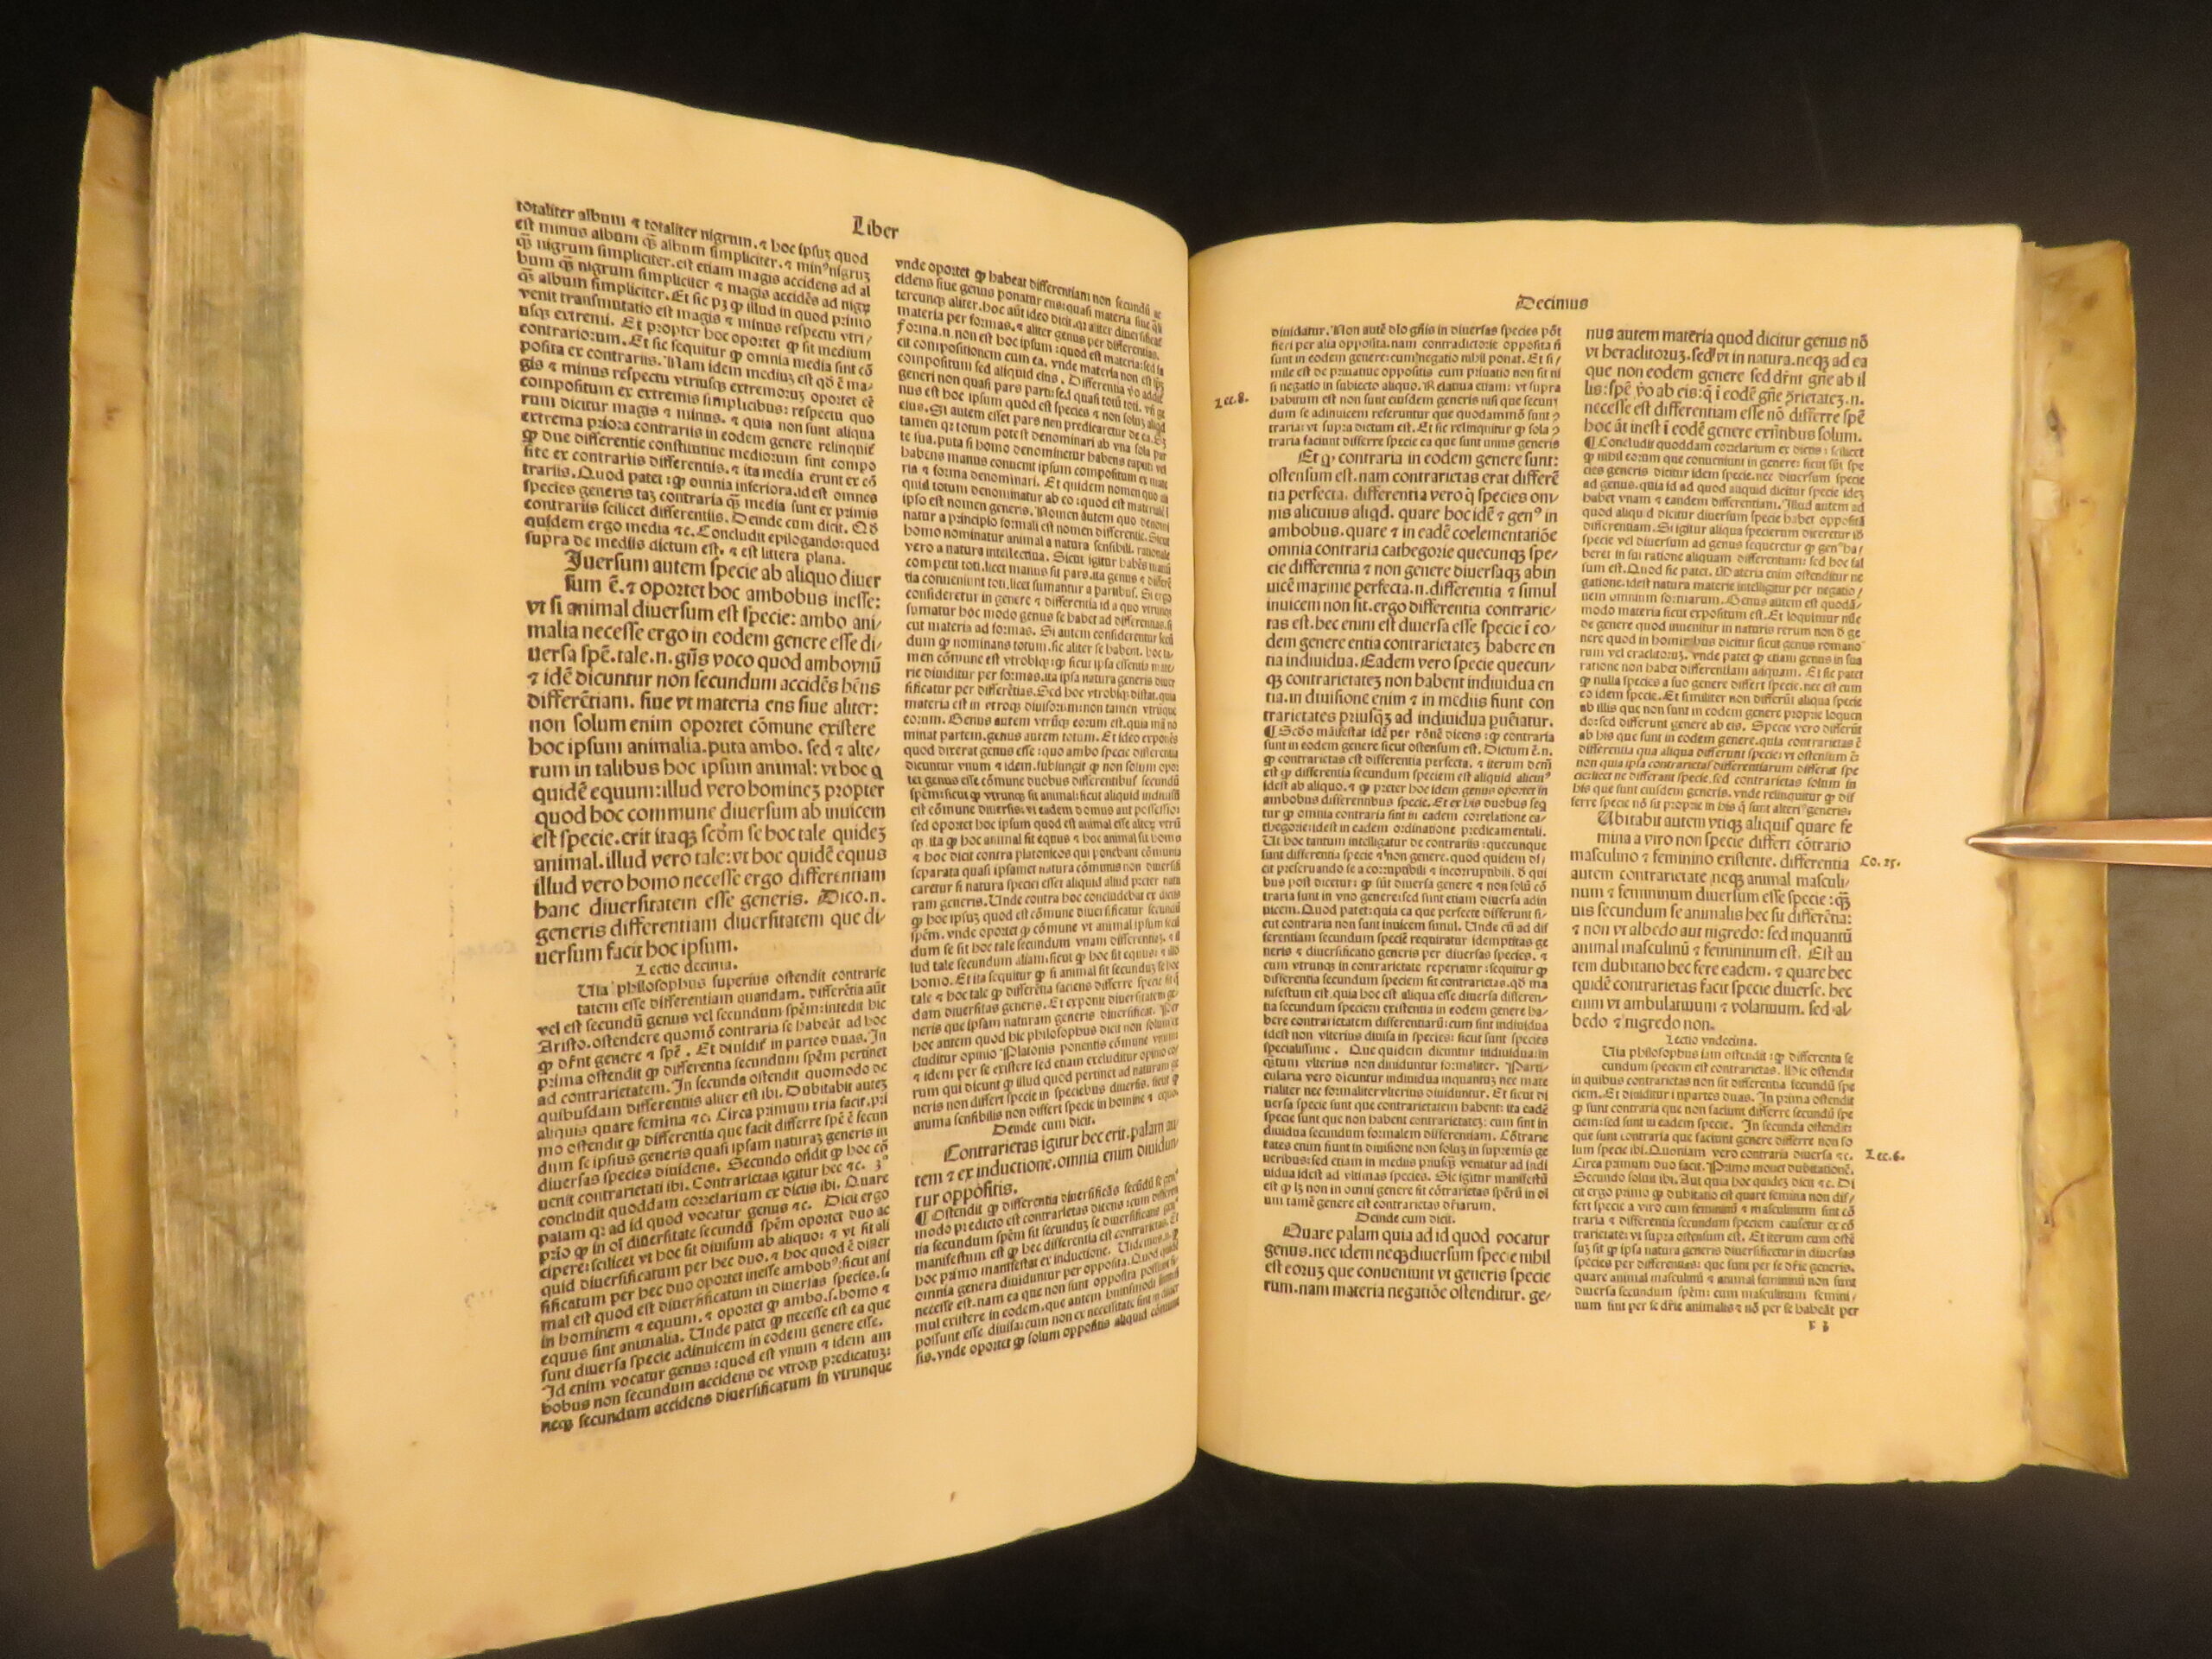 Liber
totaliter album ⁊ totaliter nigrum. ⁊ hoc ipsuꝫ quod
est minus album ꝙ̃ album simpliciter. ⁊ minꝰ nigruꝫ
ꝙ̃ nigrum simpliciter. est etiam magis accidens ad al
bum ꝙ̃ nigrum simpliciter ⁊ magis accidēs ad nigꝝ
ꝙ̃ album simpliciter. Et sic pꝫ ꝙ illud in quod primo
venit transmutatio est magis ⁊ minus respectu vtri/
usqꝫ extremi. Et propter hoc oportet ꝙ sit medium
contrariorum. Et sic sequitur ꝙ omnia media sint cō
posita ex contrariis. Nam idem mediuꝫ est qđ ē ma-
gis ⁊ minus respectu vtriusqꝫ extremoruꝫ oportet eē
compositum ex extremis simplicibus: respectu quo
rum dicitur magis ⁊ minus. ⁊ quia non sunt aliqua
extrema priora contrariis in eodem genere relinquit̉
ꝙ due differentie constitutiue mediorum sint compo
site ex contrariis differentiis. ⁊ ita media erunt ex cō
trariis. Quod patet: ꝙ omnia inferiora. id est omnes
species generis taꝫ contraria ꝙ̃ media sunt ex primis
contrariis scilicet differentiis. Deinde cum dicit. Qđ
quidem ergo media ⁊c. Concludit epilogando: quod
supra de mediis dictum est. ⁊ est littera plana.
Iuersum autem specie ab aliquo diuer
sum ē. ⁊ oportet hoc ambobus inesse:
vt si animal diuersum est specie: ambo ani/
malia necesse ergo in eodem genere esse di/
uersa spē. tale .n. gn̄s voco quod ambo vnū
⁊ idē dicuntur non secundum accidēs hn̄s
differētiam. siue vt materia ens siue aliter:
non solum enim oportet cōmune existere
hoc ipsum animalia. puta ambo. sed ⁊ alte/
rum in talibus hoc ipsum animal: vt hoc q
quidē equum: illud vero homineꝫ propter
quod hoc commune diuersum ab inuicem
est specie. erit itaqꝫ scd̄m se hoc tale quideꝫ
animal. illud vero tale: vt hoc quidē equus
illud vero homo necesse ergo differentiam
hanc diuersitatem esse generis. Dico .n.
generis differentiam diuersitatem que di/
uersum facit hoc ipsum.
Lectio decima.
Uia philosophus superius ostendit contrarie
tatem esse differentiam quandam. differētia aūt
vel est secundū genus vel secundum spēm: intēdit hic
Aristo. ostendere quomō contraria se habeāt ad hoc
ꝙ dr̄nt genere ⁊ spē. Et diuidit̉ in partes duas. In
prima ostendit ꝙ differentia secundum spēm pertinet
ad contrarietatem. In secunda ostendit quomodo de
quibusdam differentiis aliter est ibi. Dubitabit auteꝫ
aliquis quare femina ⁊c. Circa primum tria facit. pri
mo ostendit ꝙ differentia que facit differre spē ē secun
dum se ipsius generis quasi ipsam naturaꝫ generis in
diuersas species diuidens. Secundo on̄dit ꝙ hoc cō
uenit contrarietati ibi. Contrarietas igitur hec ⁊c. 3°
concludit quoddam correlarium ex dictis ibi. Quare
palam qꝛ ad id quod vocatur genus ⁊c. Dicit ergo
prīo ꝙ in oī diuersitate secundū spēm oportet duo ac
cipere: scilicet vt hoc sit diuisum ab aliquo: ⁊ vt sit ali
quid diuersificatum per hec duo. ⁊ hoc quod ē diuer
sificatum per hec duo oportet inesse ambobꝰ: sicut ani
mal est quod est diuersificatum in diuersas species. s.
in hominem ⁊ equum. ⁊ oportet ꝙ ambo .s. homo ⁊
equus sint animalia. Unde patet ꝙ necesse est ea que
sunt diuersa specie adinuicem in eodem genere esse.
Id enim vocatur genus: quod est vnum ⁊ idem am
bobus non secundum accidens de vtroqꝫ predicatuꝫ:
neqꝫ secundum accidens diuersificatum in vtrunque
vnde oportet ꝙ habeat differentiam non secundū ac
cidens siue genus ponatur ens: quasi materia siue q̄li
tercunqꝫ aliter. hoc aūt ideo dicit. qꝛ aliter diuersificat̉
materia per formas. ⁊ aliter genus per differentias.
Forma .n. non est hoc ipsum: quod est materia: sed fa
cit compositionem cum ea. vnde materia non est ipsuꝫ
compositum sed aliquid eius. Differentia ꝟo addit̉
generi non quasi pars parti: sed quasi totū toti. vn̄ ge
nus est hoc ipsum quod est species ⁊ non soluꝫ aliqđ
eius. Si autem esset pars non predicaretur de ea. Sꝫ
tamen qꝛ totum potest denominari ab vna sola par
te sua. puta si homo denominetur habens caput: vel
habens manus conuenit ipsum compositum ex mate
ria ⁊ forma denominari. Et quidem nomen quo ali
quid totum denominatur ab eo: quod est materiale i
ipso est nomen generis. Nomen autem quo denomi
natur a principio formali est nomen differentie. Sicut
homo nominatur animal a natura sensibili. rationale
vero a natura intellectiua. Sicut igitur habēs manū
competit toti. licet manus sit pars. ita genus ⁊ differē
tia conueniunt toti. licet sumantur a partibus. Si ergo
consideretur in genere ⁊ differentia id a quo vtrunqꝫ
sumatur hoc modo genus se habet ad differentias. si
cut materia ad formas. Si autem considerentur secū
dum ꝙ nominans totum. sic aliter se habent. hoc ta/
men cōmune est vtrobiqꝫ: ꝙ sicut ipsa essentia mate/
rie diuiditur per formas. ita ipsa natura generis diuer
sificatur per differētias. Sed hoc vtrobiqꝫ distat. quia
materia est in vtroqꝫ diuisorum: non tamen vtrūque
eorum. Genus autem vtrūqꝫ eorum est. quia mā no
minat partem. genus autem totum. Et ideo exponēs
quod dixerat genus esse: quo ambo specie differentia
dicuntur vnum ⁊ idem. subiungit ꝙ non solum opor
tet genus esse cōmune duobus differentibus secundū
spēm: sicut ꝙ vtrunqꝫ sit animal: sicut aliquid indiuisū
est cōmune diuersis. vt eadem domus aut possessio:
sed oportet hoc ipsum quod est animal esse alteꝝ vtrū
qꝫ. ita ꝙ hoc animal sit equus ⁊ hoc animal sit homo
⁊ hoc dicit contra platonicos qui ponebant cōmunia
separata quasi ipsamet natura cōmunis non diuersifi
caretur si natura speciei esset aliquid aliud preter natu
ram generis. Unde contra hoc concludebat ex dictis
ꝙ hoc ipsuꝫ quod est cōmune diuersificatur secundū
spēm. vnde oportet ꝙ cōmune vt animal ipsum secū
dum se sit hoc tale secundum vnam differentiaꝫ. ⁊ il
lud tale secundum aliam. sicut ꝙ hoc sit equus: ⁊ illđ
homo. Et ita sequitur ꝙ si animal sit secunduꝫ se hoc
tale ⁊ hoc tale ꝙ differētia faciens differre specie sit q̄
dam diuersitas generis. Et exponit diuersitatem ge/
neris que ipsam naturam generis diuersificat. Per
hoc autem quod hic philosophus dicit non solum ex
cluditur opinio Platonis ponentis cōmune vnum
⁊ idem per se existere sed etiam excluditur opinio eo/
rum qui dicunt ꝙ illud quod pertinet ad naturam ge
neris non differt specie in speciebus diuersis. sicut ꝙ
anima sensibilis non differt specie in homine ⁊ equo.
Deinde cum dicit.
Contrarietas igitur hec erit. palam au/
tem ⁊ ex inductione. omnia enim diuidun/
tur oppositis.
¶ Ostendit ꝙ differentia diuersificās secūdū se genꝰ
modo predicto est contrarietas dicens: cum differen
tia secundum spēm sit secunduꝫ se diuersificans genꝰ
manifestum est ꝙ hec differentia est contrarietas. Et
hoc primo manifestat ex inductione. Uidemus .n. ꝙ
omnia genera diuiduntur per opposita. Quod quidē
necesse est. nam ea que non sunt opposita possunt si/
mul existere in eodem. que autem huiusmodi sunt nō
possunt esse diuisa: cum non ex necessitate sint in diuer
sis. vnde oportet ꝙ solum oppositis aliquid cōmune
Decimus
diuidatur. Non autē diō gn̄is in diuersas species pōt
fieri per alia opposita. nam contradictorie opposita n̄
sunt in eodem genere: cum negatio nihil ponat. Et si/
mile est de priuatiue oppositis cum priuatio non sit ni
si negatio in subiecto aliquo. Relatiua etiam: vt supra
Lec. 8.
habitum est non sunt eiusdem generis nisi que secun/
dum se adinuicem referuntur que quodammō sunt ꝯ
traria: vt supra dictum est. Et sic relinquitur ꝙ sola ꝯ
traria faciunt differre specie ea que sunt unius generis
Et ꝙ contraria in eodem genere sunt:
ostensum est. nam contrarietas erat differē
tia perfecta. differentia vero q̄ species om/
nis alicuius aliqd. quare hoc idē ⁊ genꝰ in
ambobus. quare ⁊ in eadē coelementatiōe
omnia contraria cathegorie quecunqꝫ spe/
cie differentia ⁊ non genere diuersaqꝫ abin
uicē maxime perfecta .n. differentia ⁊ simul
inuicem non fit. ergo differentia contrarie/
tas est. hec enim est diuersa esse specie ī eo/
dem genere entia contrarietateꝫ habere en
tia indiuidua. Eadem vero specie quecun/
qꝫ contrarietateꝫ non habent indiuidua en
tia. in diuisione enim ⁊ in mediis fiunt con
trarietates priusqꝫ̃ ad indiuidua pueniatur.
¶ Scd̄o māifestat idē per rōnē dicens: ꝙ contraria
sunt in eodem genere sicut ostensum est. Dictum ē .n.
ꝙ contrarietas est differentia perfecta. ⁊ iterum dictū
est ꝙ differentia secundum speciem est aliquid alicuiꝰ
idest ab aliquo. ⁊ ꝙ preter hoc idem genus oportet in
ambobus differentibus specie. Et ex his duobus seq̄
tur ꝙ omnia contraria sint in eadem correlatione ca/
thegorie: idest in eadem ordinatione predicamentali.
Ut hoc tantum intelligatur de contrariis: quecunque
sunt differentia specie ⁊ non genere. quod quidem di/
cit preseruando se a corruptibili ⁊ incorruptibili. đ qui
bus post dicetur: ꝙ sūt diuersa genere ⁊ non solū cō
traria sunt in vno genere: sed sunt etiam diuersa adin
uicem. Quod patet: quia ea que perfecte differunt si/
cut contraria non sunt inuicem simul. Unde cū ad dif
ferentiam secundum speciē requiratur idemptitas ge
neris ⁊ diuersificatio generis per diuersas species. ⁊
cum vtrunqꝫ in contrarietate reperiatur: sequitur ꝙ
differentia secundum speciem sit contrarietas. qđ ma
nifestum est. quia hoc est aliqua esse diuersa differen/
tia secundum speciem existentia in eodem genere ha/
bere contrarietatem differentiarū: cum sint indiuidua
idest non vlterius diuisa in species: sicut sunt species
specialissime. Que quidem dicuntur indiuidua: in
q̄ꝫtum vlterius non diuiduntur formaliter. Parti/
cularia vero dicuntur indiuidua inquantuꝫ nec mate
rialiter nec formaliter vlterius diuiduntur. Et sicut di
uersa specie sunt que contrarietatem habent: ita eadē
specie sunt que non habent contrarietateꝫ: cum sint in
diuidua secundum formalem differentiam. Cōtrarie
tates enim fiunt in diuisione non soluꝫ in supremis ge
neribus: sed etiam in mediis priusqꝫ̃ veniatur ad indi
uidua idest ad vltimas species. Sic igitur manifestū
est ꝙ lꝫ non in omni genere sit cōtrarietas spērū in oī
um tamē genere est contrarietas dr̄iarum.
Deinde cum dicit.
Quare palam quia ad id quod vocatur
genus. nec idem neqꝫ diuersum specie nihil
est eoruꝫ que conueniunt vt generis specie
rum. nam materia negatiōe ostenditur. ge/
nus autem materia quod dicitur genus nō
vt heraclitoruꝫ. sed vt in natura. neqꝫ ad ea
que non eodem genere sed dr̄nt gn̄e ab il
lis: spē ꝟo ab eis: q̄ ī eodē gn̄e ꝯ̄rietateꝫ .n.
necesse est differentiam esse nō differre spē
hoc aūt inest ī eodē genere exn̄tibus solum.
¶ Concludit quoddam correlarium ex dictis: scilicet
ꝙ nihil eorum que conueniunt in genere: sicut sūt spe
cies generis dicitur idem specie. nec diuersum specie
ad genus. quia id ad quod aliquid dicitur specie ideꝫ
habet vnam ⁊ eandem differentiam. Illud autem ad
quod aliquid dicitur diuersum specie habet oppositā
differentiam. Si igitur aliqua specierum diceretur id
specie vel diuersum ad genus sequeretur ꝙ genꝰ ha/
beret in sui ratione aliquam differentiam: sed hoc fal
sum est. Quod sic patet. Materia enim ostenditur ne
gatione. idest natura materie intelligitur per negatio/
nem omnium formarum. Genus autem est quodā/
modo materia sicut expositum est. Et loquimur nūc
de genere quod inuenitur in naturis rerum non đ ge
nere quod in hominibus dicitur sicut genus romano
rum vel eraclitoruꝫ. vnde patet ꝙ etiam genus in sua
ratione non habet differentiam aliquam. Et sic patet
ꝙ nulla species a suo genere differt specie. nec est cum
eo idem specie. Et similiter non differūt aliqua specie
ab illis que non sunt in eodem genere proprie loquen
do: sed differunt genere ab eis. Specie vero differūt
ab his que sunt in eodem genere. quia contrarietas ē
differentia qua aliqua differunt specie: vt ostensum ē:
non quia ipsa contrarietas differentiarum differat spe
cie: licet ne differant specie. sed contrarietas solum in
his que sunt eiusdem generis. vnde relinquitur ꝙ dif
ferre specie nō sit proprie in his q̄ sunt alteriꝰ generis.
Ubitabit autem vtiqꝫ aliquis quare fe
mina a viro non specie differt cōtrario
masculino ⁊ feminino existente. differentia
Co. 25.
autem contrarietate neqꝫ animal masculi/
num ⁊ femininum diuersum esse specie: qꝫ̃
uis secundum se animalis hec sit differētia:
⁊ non vt albedo aut nigredo: sed inquantū
animal masculinū ⁊ femininum est. Est au
tem dubitatio hec fere eadem. ⁊ quare hec
quidē contrarietas facit specie diuerse. hec
enim vt ambulatiuum ⁊ volatiuum. sed al/
bedo ⁊ nigredo non.
Lectio vndecima.
Uia philosophus iam ostendit: ꝙ differentia se
cundum speciem est contrarietas. Hic ostendit
in quibus contrarietas non sit differentia secundū spe
ciem. Et diuiditur ī partes duas. In prima ostendit
ꝙ sunt contraria que non faciunt differre secundū spe
ciem: sed sunt in eadem specie. In secunda ostendit:
que sunt contraria que faciunt genere differre non so
lum specie ibi. Quoniam vero contraria diuersa ⁊c.
Lec. 6.
Circa primum duo facit. Primo mouet dubitationē.
Secundo soluit ibi. Aut quia hoc quideꝫ dicit ⁊c. Di
cit ergo primo ꝙ dubitatio est quare femina non dif/
fert specie a viro cum femininū ⁊ masculinum sint cō
traria ⁊ differentia secundum speciem causetur ex cō
trarietate: vt supra ostensum est. Et iterum cum ostē
suꝫ sit ꝙ ipsa natura generis diuersificetur in diuersas
species per differentias: que sunt per se dr̄ie generis:
quare animal masculinū ⁊ animal femininū non sunt
diuersa secundum spēm: cum masculinum ⁊ femini/
num sint per se dr̄ie animalis ⁊ nō per se habeāt per
F 3